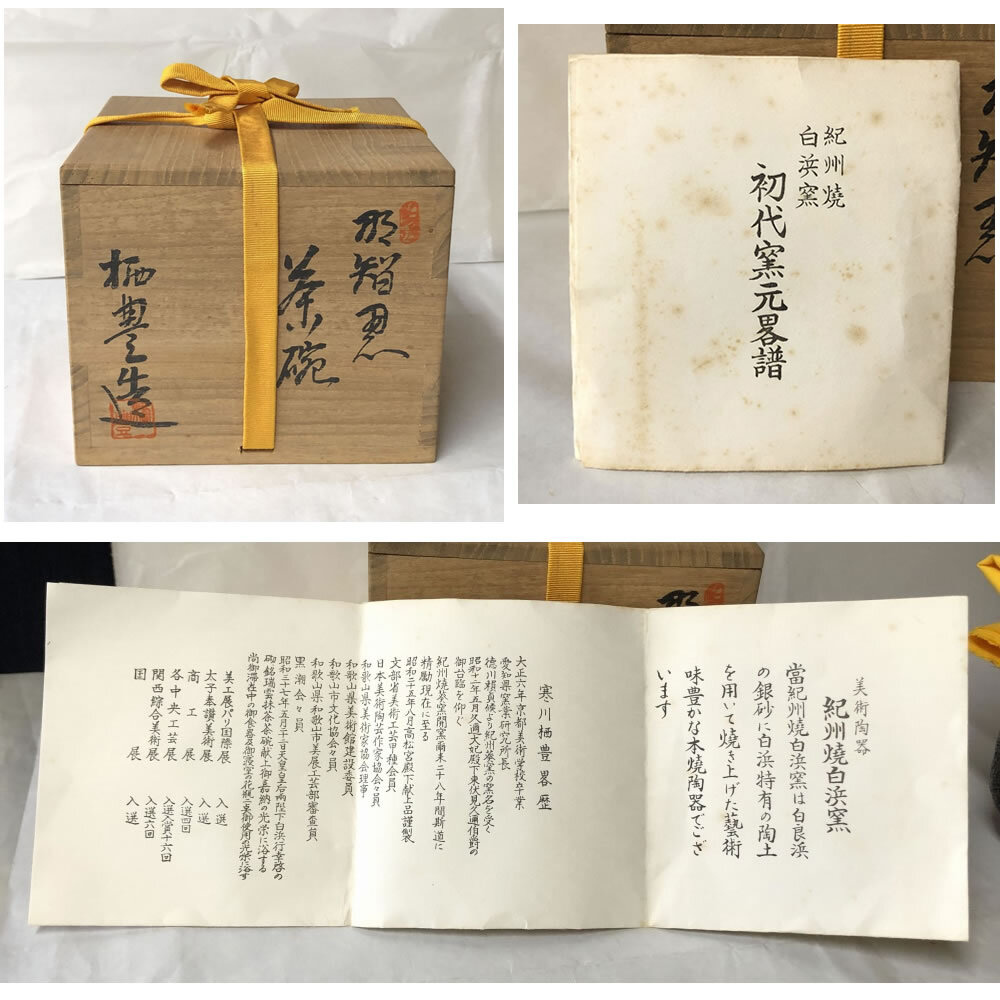 那智黒
茶碗
栖豊造
紀州焼
白浜窯
初代窯元畧譜
美術陶器
紀州焼白浜窯
當紀州焼白浜窯は白良浜
の銀砂に白浜特有の陶土
を用いて焼き上げた藝術
味豊かな本焼陶器でござ
います
寒川栖豊畧歴
大正六年京都美術学校卒業
愛知県窯業研究所長
徳川頼貞候より紀州葵窯の窯名を受く
昭和十二年五月久邇大妃殿下東伏見久邇伯爵の
御台臨を仰ぐ
紀州焼葵窯開窯爾来二十八年間斯道に
精励現在に至る
昭和二五年八月高松宮殿下献上品謹製
文部省美術工芸甲種会員
日本美術陶芸作家協会々員
和歌山県美術家協会理事
和歌山県美術館建設委員
和歌山市文化協会々員
和歌山県和歌山市美展工芸部審査員
黒潮会々員
昭和三十七年五月二十二日天皇皇后両陛下白浜行幸啓の
砌銘瑞雲抹茶茶碗献上御嘉納の光栄に浴する
尚御滞在中の御食器及御寝室の花瓶二ヶ御使用の光栄に浴す
美工展パリ国際展 入選
太子奉讃美術展 入選
商工展 入選四回
各中央工芸展 入選入賞十六回
関西綜合美術展 入選六回
国展 入選